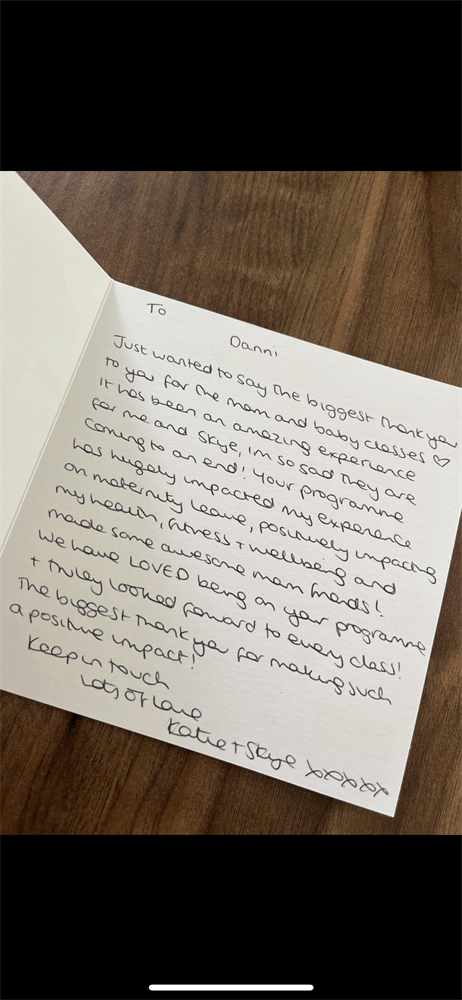 To
Danni
Just wanted to say the biggest thank you
to you for the mom and baby classes ♡
it has been an amazing experience
for me and Skye, im so sad they are
coming to an end! Your programme
has hugely impacted my experience
on maternity leave, positively impacting
my health, fitness + wellbeing and
made some awesome mam friends!
We have LOVED being on your programme
+ truley looked forward to every class!
The biggest thank you for making such
a positive impact!
Keep in touch
Lots of Love
Katie + Skye xoxoxox